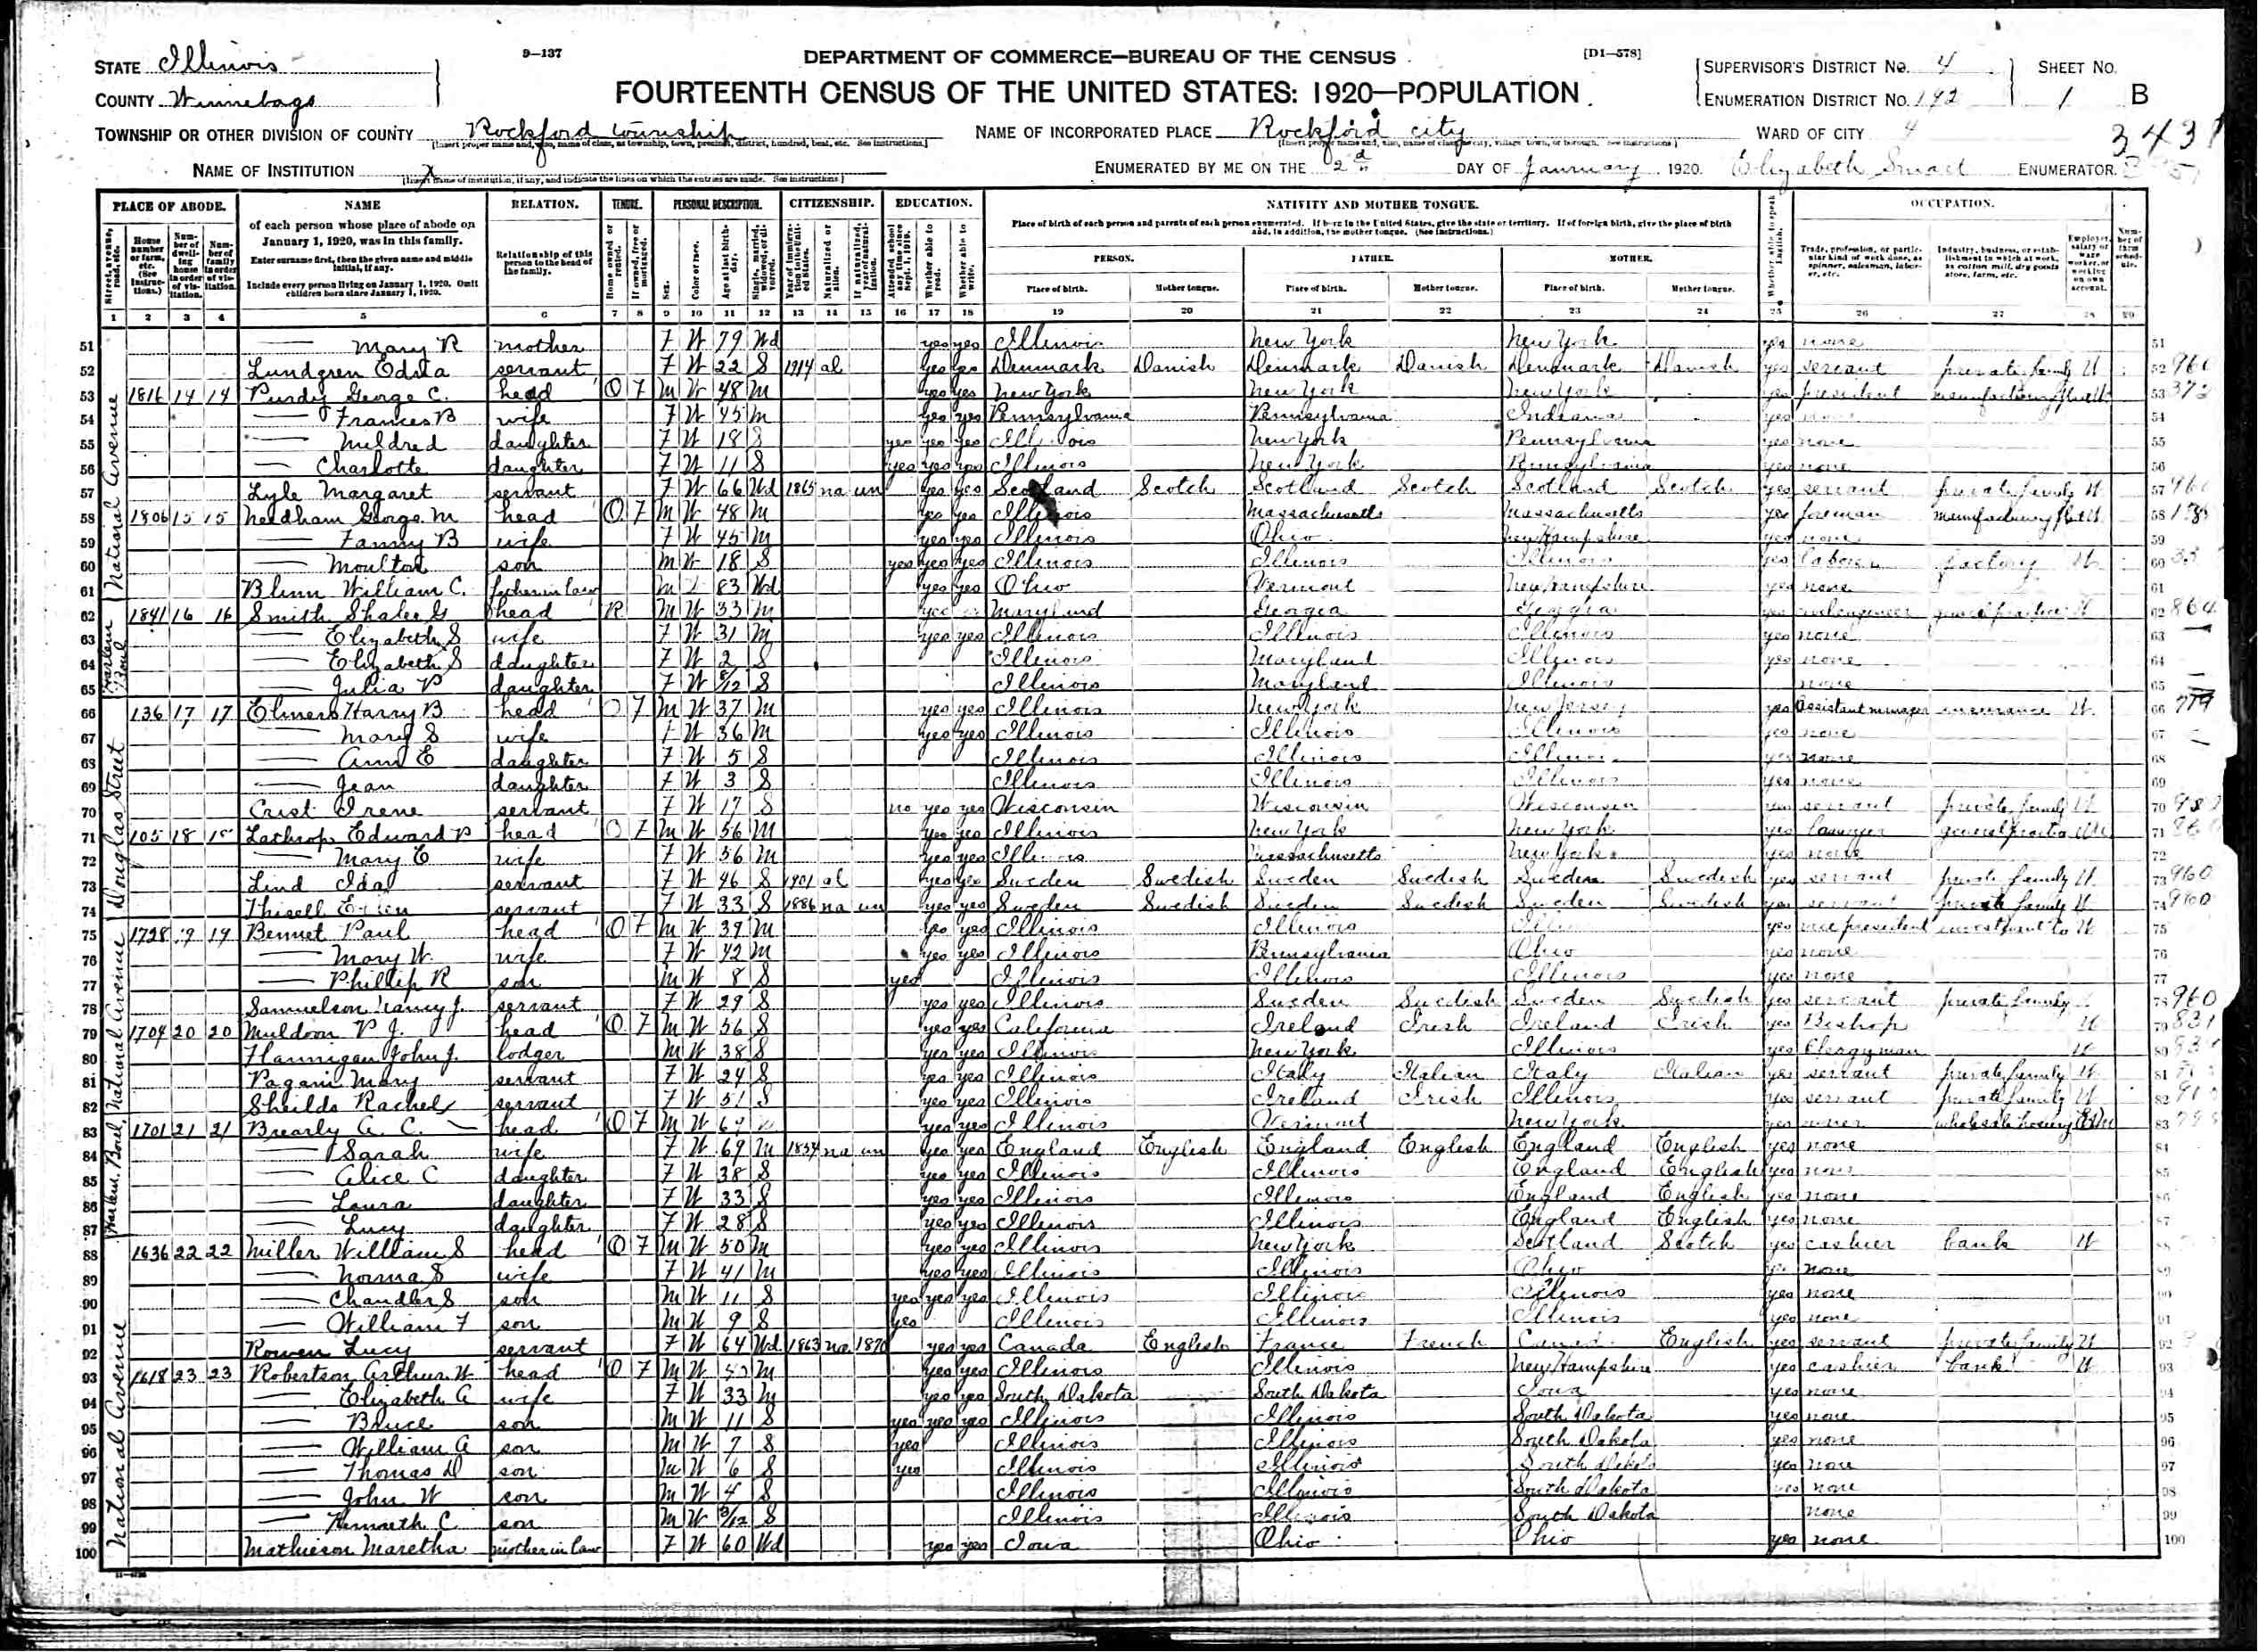 9—137
DEPARTMENT OF COMMERCE—BUREAU OF THE CENSUS
[D1—578]
STATE Illinois
COUNTY Winnebago
FOURTEENTH CENSUS OF THE UNITED STATES: 1920—POPULATION
SUPERVISOR'S DISTRICT No. 4
ENUMERATION DISTRICT No. 192
SHEET No. 1 B
TOWNSHIP OR OTHER DIVISION OF COUNTY Rockford township
NAME OF INCORPORATED PLACE Rockford city
WARD OF CITY 4
3431
NAME OF INSTITUTION X
ENUMERATED BY ME ON THE 2d DAY OF January, 1920. Elizabeth Smart ENUMERATOR.
PLACE OF ABODE. NAME RELATION. TENURE. PERSONAL DESCRIPTION. CITIZENSHIP. EDUCATION. NATIVITY AND MOTHER TONGUE. OCCUPATION.
of each person whose place of abode on January 1, 1920, was in this family.
Enter surname first, then the given name and middle initial, if any.
Include every person living on January 1, 1920. Omit children born since January 1, 1920.
Relationship of this person to the head of the family.
Place of birth of each person and parents of each person enumerated. If born in the United States, give the state or territory. If of foreign birth, give the place of birth and, in addition, the mother tongue. (See instructions.)
PERSON. FATHER. MOTHER.
Place of birth. Mother tongue. Place of birth. Mother tongue. Place of birth. Mother tongue.
1 2 3 4 5 6 7 8 9 10 11 12 13 14 15 16 17 18 19 20 21 22 23 24 25 26 27 28 29
51 — Mary R mother F W 79 Wd yes yes Illinois New York New York yes none 51
52 Lundgren Edna servant F W 22 S 1914 al yes yes Denmark Danish Denmark Danish Denmark Danish yes servant private family W 52
53 1816 14 14 Purdy George C. head O F M W 48 M yes yes New York New York New York yes president 53
54 — Frances B wife F W 45 M yes yes Pennsylvania Pennsylvania Indiana yes none 54
55 — Mildred daughter F W 18 S yes yes yes Illinois New York Pennsylvania yes none 55
56 — Charlotte daughter F W 11 S yes yes yes Illinois New York Pennsylvania yes none 56
57 Lyle Margaret servant F W 66 Wd 1865 na un yes yes Scotland Scotch Scotland Scotch Scotland Scotch yes servant private family W 57
58 1806 15 15 Needham George M head O F M W 48 M yes yes Illinois Massachusetts Massachusetts yes foreman 58
59 — Fanny B wife F W 45 M yes yes Illinois Ohio New Hampshire yes none 59
60 — Moulton son M W 18 S yes yes yes Illinois Illinois Illinois yes laborer factory W 60
61 Blinn William C. father in law M W 83 Wd yes yes Ohio Vermont New Hampshire yes none 61
62 1841 16 16 Smith Shaler G head R M W 33 M Maryland Georgia Georgia yes civil engineer general practice W 62
63 — Elizabeth S wife F W 31 M yes yes Illinois Illinois Illinois yes none 63
64 — Elizabeth S daughter F W 2 S Illinois Maryland Illinois yes none 64
65 — Julia P daughter F W 8/12 S Illinois Maryland Illinois none 65
66 136 17 17 Elmers Harry B head O F M W 37 M yes yes Illinois New York New Jersey yes Assistant manager insurance W 66
67 — Mary S wife F W 36 M yes yes Illinois Illinois Illinois yes none 67
68 — Ann E daughter F W 5 S Illinois Illinois Illinois yes none 68
69 — Jean daughter F W 3 S Illinois Illinois Illinois yes none 69
70 Crist Irene servant F W 17 S no yes yes Wisconsin Wisconsin Wisconsin yes servant private family W 70
71 105 18 18 Lathrop Edward P head O F M W 56 M yes yes Illinois New York New York yes lawyer general practice 71
72 — Mary E wife F W 56 M yes yes Illinois Massachusetts New York yes none 72
73 Lind Ida servant F W 46 S 1901 al yes yes Sweden Swedish Sweden Swedish Sweden Swedish yes servant private family W 73 960
74 Thisell Ellen servant F W 33 S 1886 na un yes yes Sweden Swedish Sweden Swedish Sweden Swedish yes servant private family W 74 960
75 1728 19 19 Bennet Paul head O F M W 39 M yes yes Illinois Illinois yes vice president investment Co W 75
76 — Mary W. wife F W 42 M yes yes Illinois Pennsylvania Ohio yes none 76
77 — Phillip R son M W 8 S yes Illinois Illinois Illinois yes none 77
78 Samuelson Nancy J. servant F W 29 S yes yes Illinois Sweden Swedish Sweden Swedish yes servant private family 78 960
79 1704 20 20 Muldoon P J. head O F M W 56 S yes yes California Ireland Irish Ireland Irish yes Bishop W 79 831
80 Flannigan John J. lodger M W 38 S yes yes Illinois New York Illinois yes Clergyman W 80
81 Pagani Mary servant F W 24 S yes yes Illinois Italy Italian Italy Italian yes servant private family W 81
82 Sheilds Rachel servant F W 51 S yes yes Illinois Ireland Irish Illinois yes servant private family W 82
83 1701 21 21 Brearly A. C. — head O F M W yes yes Illinois Vermont New York yes owner 83
84 — Sarah wife F W 69 M 1854 na un yes yes England English England English England English yes none 84
85 — Alice C daughter F W 38 S yes yes Illinois Illinois England English yes none 85
86 — Laura daughter F W 33 S yes yes Illinois Illinois England English yes none 86
87 — Lucy daughter F W 28 S yes yes Illinois Illinois England English yes none 87
88 1636 22 22 Miller William S head O F M W 50 M yes yes Illinois New York Scotland Scotch yes cashier bank W 88
89 — Norma S wife F W 41 M yes yes Illinois Illinois Ohio yes none 89
90 — Chandler S son M W 11 S yes yes yes Illinois Illinois Illinois yes none 90
91 — William F son M W 9 S yes Illinois Illinois Illinois yes none 91
92 Rowen Lucy servant F W 64 Wd 1863 na 1870 yes yes Canada English France French Canada English yes servant private family W 92
93 1618 23 23 Robertson Arthur W head O F M W M yes yes Illinois Illinois New Hampshire yes cashier bank W 93
94 — Elizabeth A wife F W 33 M yes yes South Dakota South Dakota Iowa yes none 94
95 — Bruce son M W 11 S yes yes yes Illinois Illinois South Dakota yes none 95
96 — William A son M W 7 S yes Illinois Illinois South Dakota yes none 96
97 — Thomas D son M W 6 S yes Illinois Illinois South Dakota yes none 97
98 — John W son M W 4 S Illinois Illinois South Dakota yes none 98
99 — Kenneth C son M W S Illinois Illinois South Dakota none 99
100 Mathieson Maretha mother in law F W 60 Wd yes yes Iowa Ohio Ohio yes none 100
National Avenue
Harlem Boul
Douglas Street
National Avenue
Harlem Boul
National Avenue